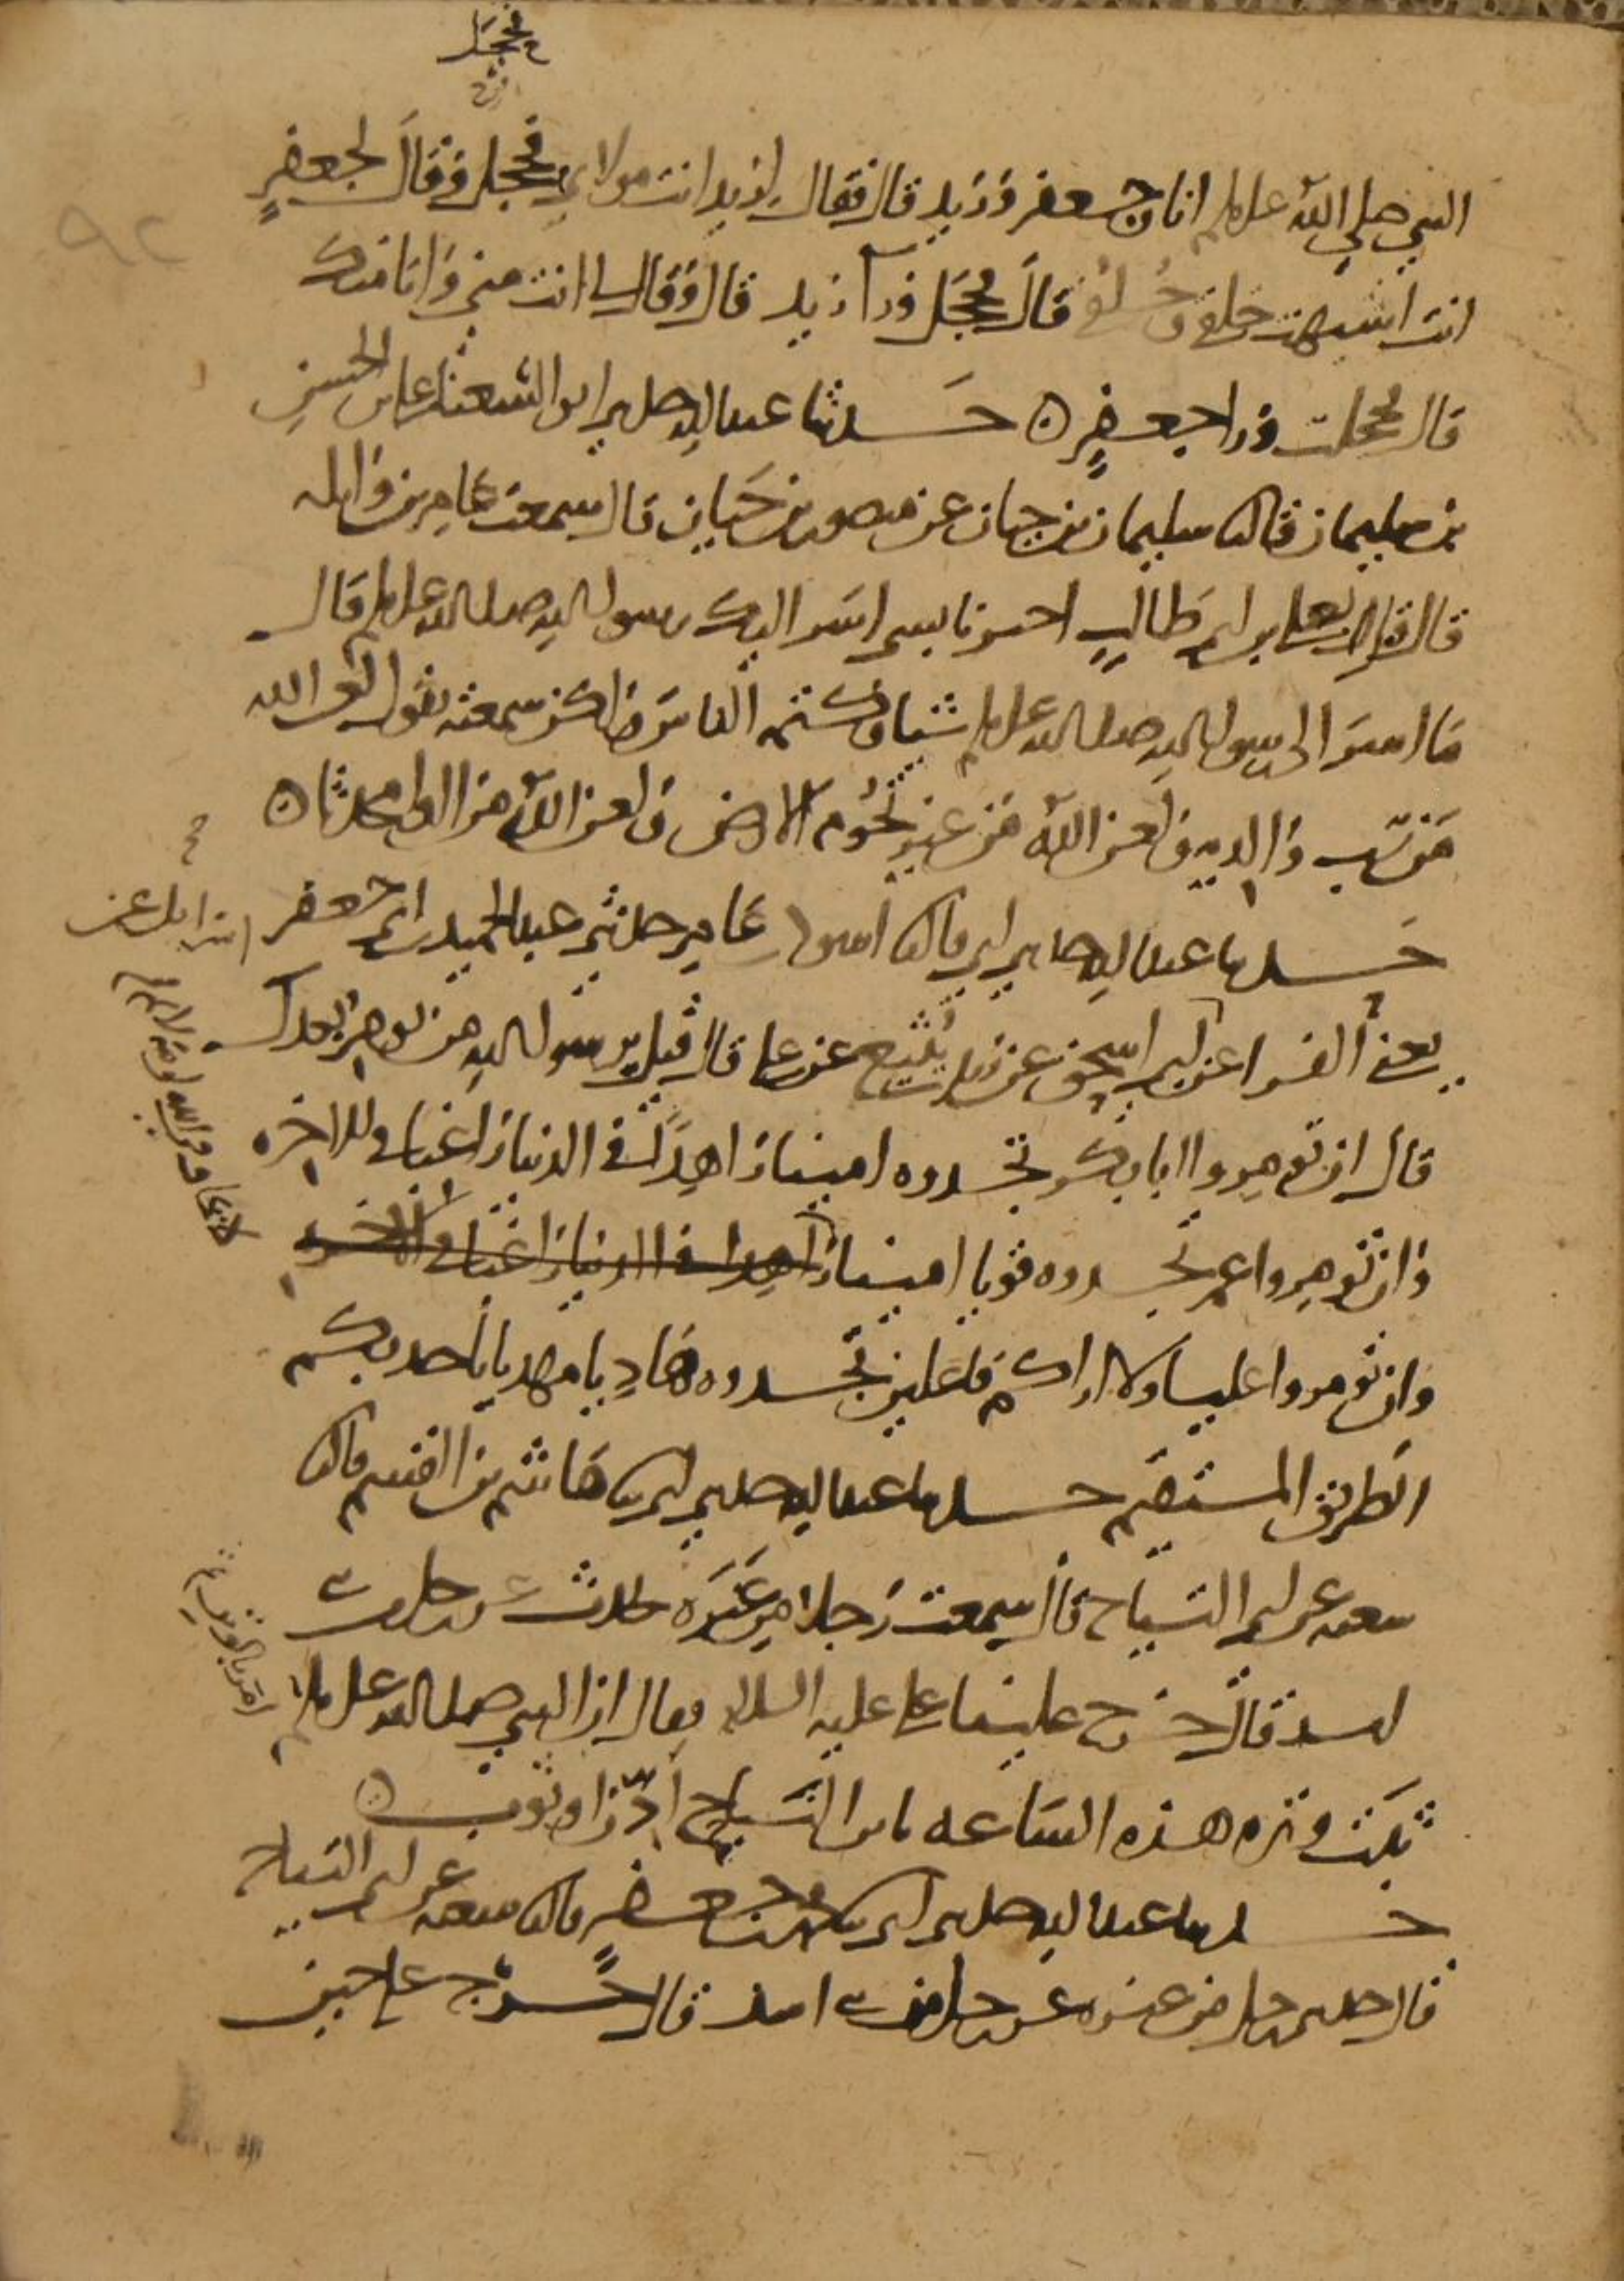 فحجل
٩٢
النبي صلى الله عليه وسلم انا وجعفر وزيد قال فقال لزيد انت مولاي فحجل وقال لجعفر
انت اشبهت خلقي وخلقي قال فحجل ورا زيد قال وقال لي انت مني وانا منك
قال فحجلت ورا جعفر ه حدثنا عبد الله حدثني ابو الشعثا علي بن الحسن
بن سليمان قال نا سليمان بن حيان عن منصور بن حيان قال سمعت عامر بن واثله
قال قيل لعلي بن ابي طالب اخبرنا بشي اسر اليك رسول الله صلى الله عليه وسلم قال
ما اسر الي رسول الله صلى الله عليه وسلم شيا وكتمه الناس ولكن سمعته يقول لعن الله
من سب والديه ولعن الله من غير تخوم الارض ولعن الله من اوى محدثا ه
حدثنا عبد الله حدثني ابي قال نا اسود بن عامر حدثني عبد الحميد بن ابي جعفر
يعني الفرا عن اسرايل عن ابي اسحق عن زيد بن يثيع عن علي قال قيل يرسول الله من نومر بعدك
قال ان تومروا ابا بكر تجدوه امينا زاهدا في الدنيا راغبا في الاخره
وان تومروا عمر تجدوه قويا امينا زاهدا في الدنيا راغبا في الاخره
لا يخاف في الله لومة لايم
وان تومروا عليا ولا اراكم فاعلين تجدوه هاديا مهديا ياخذ بكم
الطريق المستقيم حدثنا عبد الله حدثني ابي نا هاشم بن القسم قال نا
شعبه عن ابي التياح قال سمعت رجلا من عنزه يحدث عن رجل من بني
اسد قال خرج علينا علي عليه السلام فقال ان النبي صلى الله عليه وسلم امر بالوتر
ثبت وتره هذه الساعه يا بن التياح اذن او ثوب ه
حدثنا عبد الله حدثني ابي نا محمد بن جعفر قال نا شعبه عن ابي التياح
قال حدثني رجل من عنزه عن رجل من بني اسد قال خرج علي حين